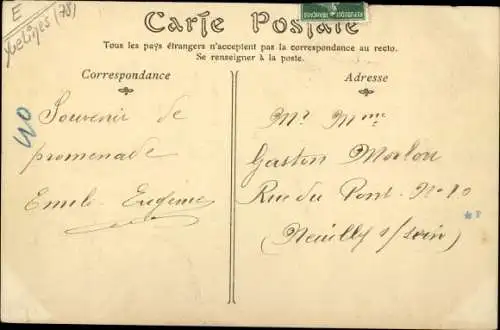 E
Yvelines (78)
Carte Postale
Tous les pays étrangers n'acceptent pas la correspondance au recto.
Se renseigner à la poste.
Correspondance
Adresse
40
Souvenir de
promenade
Emile Eugénie
Mr Mme
Gaston Morlon
Rue du Pont N°10
(Neuilly s/sein)